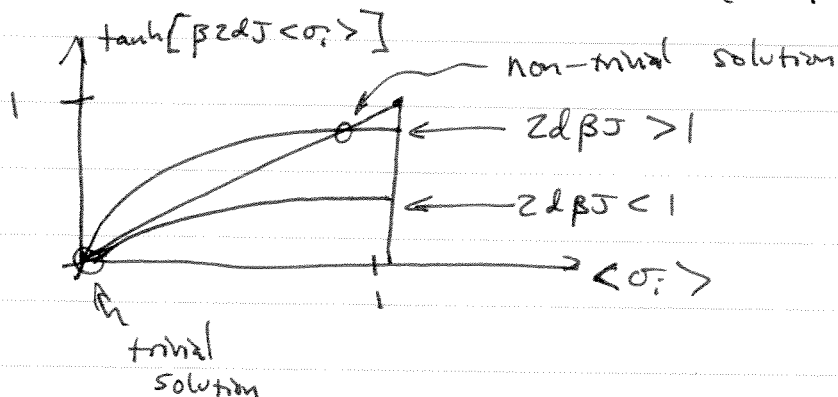 tanh[β2dJ<σᵢ>]
non-trivial solution
1
2dβJ >1
2dβJ < 1
1
<σᵢ>
trivial
solution